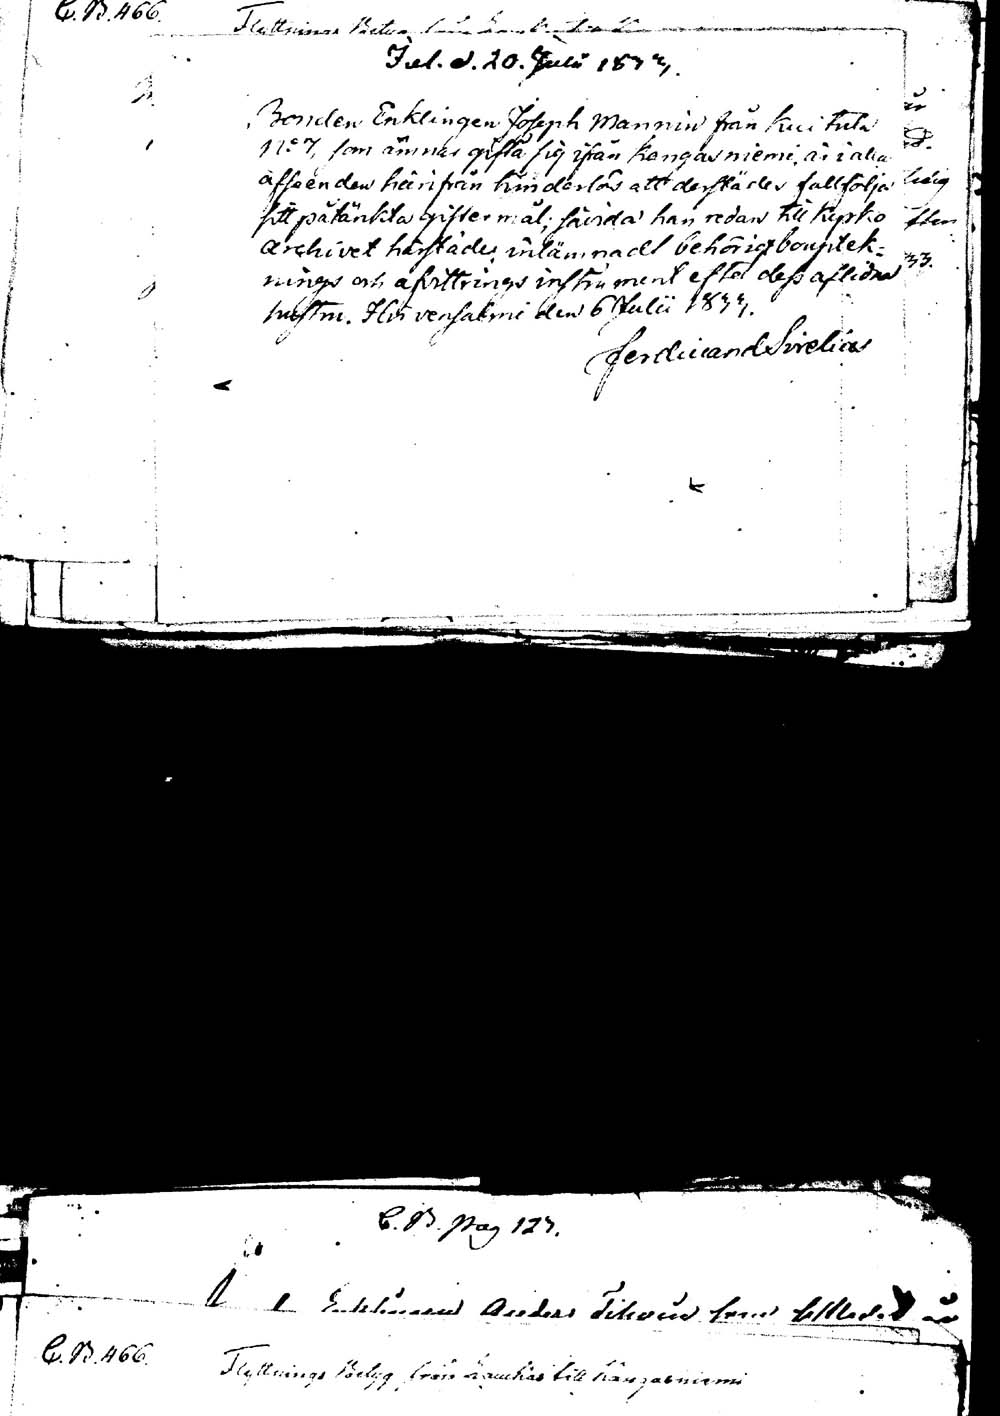 C.B. 466.
Flyttnings Betyg från
Jul. d. 20. Julii 1833.
Bonden Enklingen Joseph Mannin från Kuitula
No 7, som ämnar gifta sig ifrån Kangasniemi, är i alla
afseenden härifrån hinderlös att derstädes fullfölja
sitt påtänkta giftermål; såvida han redan till Kyrko
archivet härstädes inlämnadt behörigt bouptek-
nings och afvittrings instrument efter dess aflidna
hustru. Hirvensalmi den 6 Julii 1833.
Ferdinand Sirelius
33.
C.B. pag 123.
Enklingen Anders Tikain från
C.B. 466.
Flyttnings Betyg från till Kangasniemi